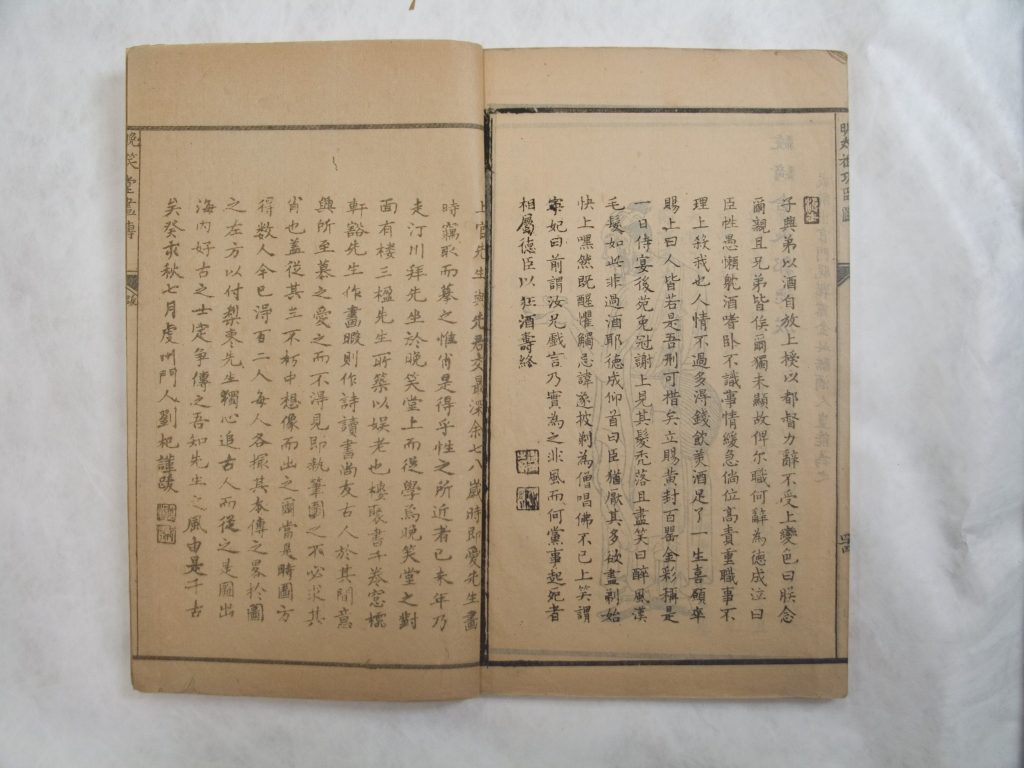 子興弟以酒自放上授以都督力辭不受上變色曰朕念
爾親且兄弟皆侯爾獨未顯故俾尔職何辭為德成泣曰
臣性愚懶躭酒嗜卧不識事情緩急倘位高責重職事不
理上殺我也人情不過多淂錢飲羙酒足了一生喜願卒
賜上曰人皆若是吾刑可措矣立賜黄封百罌金彩稱是
一日侍宴後苑免冠謝上見其髮禿落且盡笑曰醉風漢
毛髮如此非過酒耶德成仰首曰臣猶厭其多欲盡剃始
快上嘿然既醒懼觸忌諱遂披剃為僧唱佛不已上笑謂
寧妃曰前謂汝兄戲言乃實為之非風而何黨事起死者
相屬德臣以狂酒壽終
晚笑堂畫傳
跋
上官先生與先君交最深余七八歲時即愛先生畫
時竊取而摹之惟肖是得乎性之所近者已未年乃
走汀川拜先生於晚笑堂上而從學焉晚笑堂之對
面有楼三楹先生所築以娱老也樓藏書千卷窓櫺
軒豁先生作畫暇則作詩讀書尚友古人於其間意
興所至慕之愛之而不得見即執筆圖之不必求其
肖也盖從其三不朽中想像而出之爾當是時圖方
得数人今已淂百二人每人各撮其本傳之畧於圖
之左方以付梨棗先生獨心追古人而從之是圖出
海内好古之士定争傳之吾知先生之風由是千古
矣癸亥秋七月虔州門人劉杞謹跋